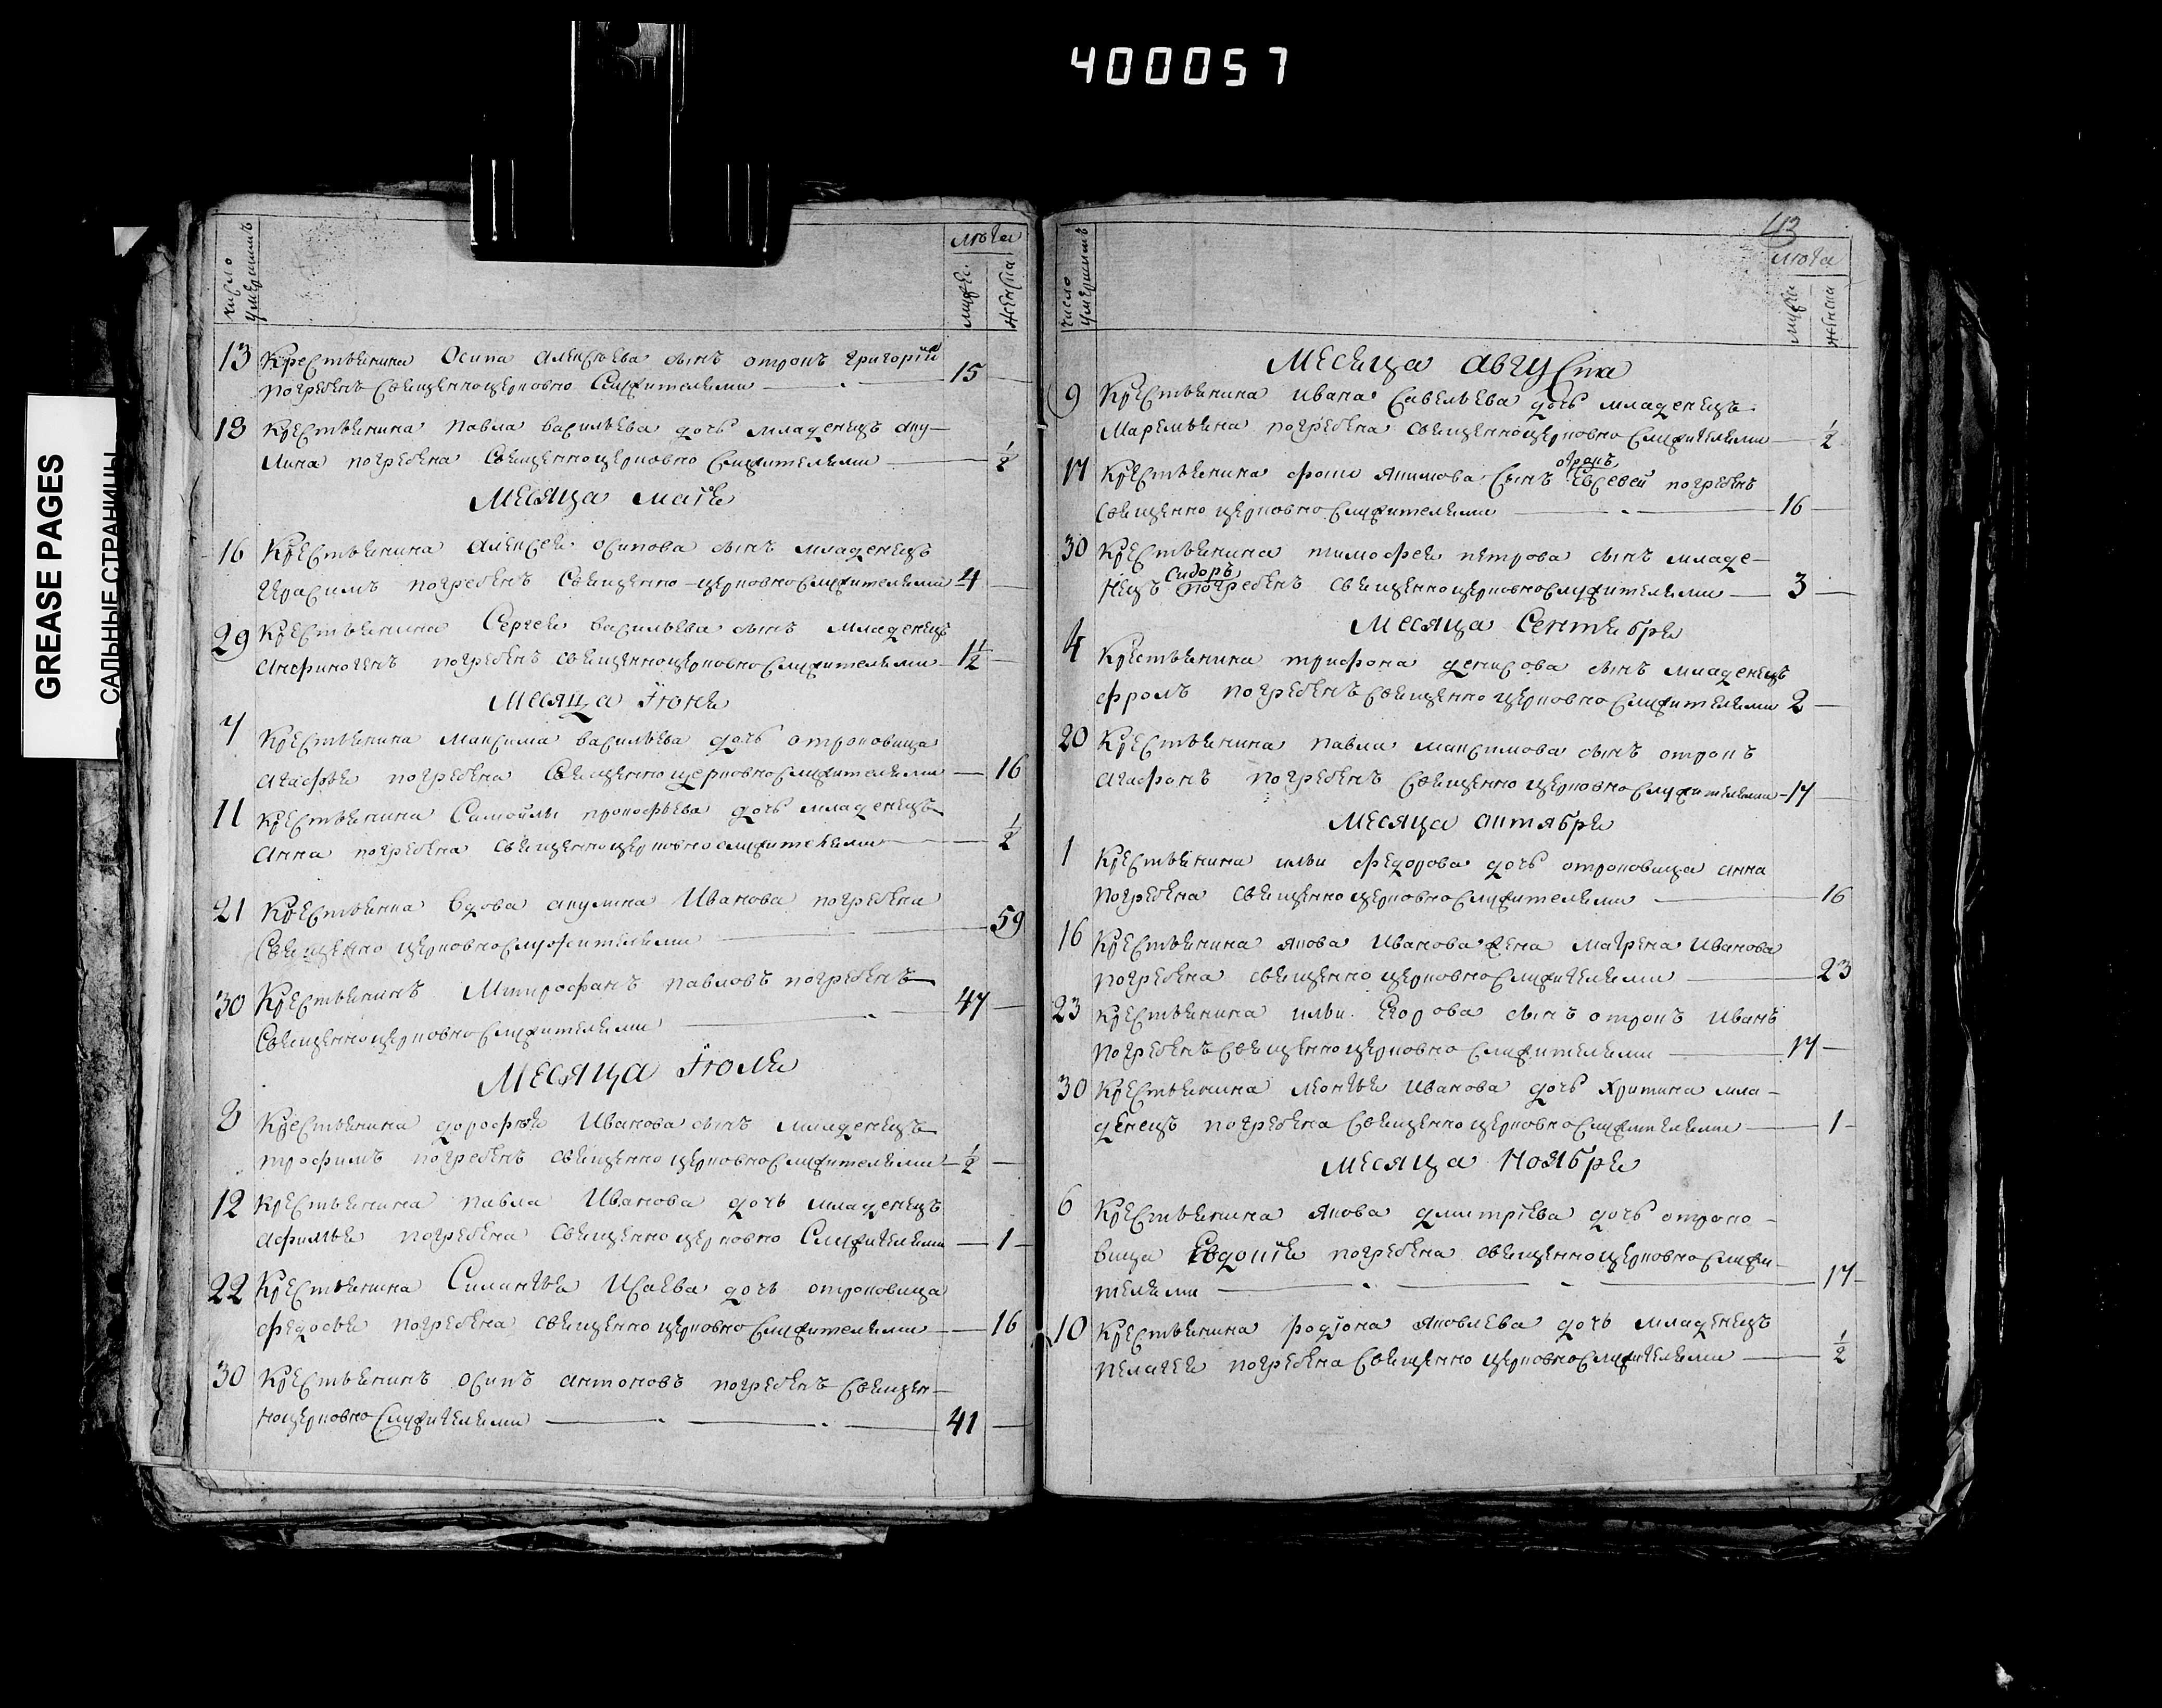 400057
GREASE PAGES
САЛЬНЫЕ СТРАНИЦЫ
число умершимъ
лѣта
мужес.
женска
13 Крестьянина Осипа Алексѣева сынъ отрокъ Григорий
погребенъ Священноцерковно Служителями 15
18 Крестьянина павла васильева дочь младенецъ аку-
лина погребена Священноцерковно служителями 1/2
Месяца маія
16 Крестьянина Алексея осипова сынъ младенецъ
Герасимъ погребенъ Священно-церковнослужителями 4
29 Крестьянина Сергея васильева сынъ младенецъ
анфиногенъ погребенъ священноцерковнослужителями 1 1/2
Месяца Іюня
7 Крестьянина максима васильева дочь отроковица
агафья погребена Священноцерковнослужителями 16
11 Крестьянина Самойлы прокофьева дочь младенецъ
анна погребена священноцерковнослужителями 1/2
21 Крестьянка вдова акулина Иванова погребена
Священно церковнослужителями 59
30 Крестьянинъ Митрофанъ павловъ погребенъ
Священноцерковнослужителями 47
Месяца Іюля
8 Крестьянина дорофея Иванова сынъ младенецъ
трофимъ погребенъ священноцерковнослужителями 1/2
12 Крестьянина павла Иванова дочь младенецъ
афимья погребена священноцерковно Служителями 1
22 Крестьянина Силантья Исаева дочь отроковица
федосья погребена священноцерковнослужителями 16
30 Крестьянинъ осипъ антоновъ погребенъ Священ-
ноцерковнослужителями 41
113
число умершимъ
лѣта
мужес
женски
Месяца августа
9 Крестьянина ивана Савельева дочь младенецъ
Маремьяна погребена священноцерковно служителями 1/2
17 Крестьянина фоки якимова Сынъ отрокъ Евсевей погребенъ
священно церковнослужителями 16
30 Крестьянина тимофея петрова сынъ младе-
нецъ Сидоръ погребенъ священноцерковнослужителями 3
Месяца Сентября
4 Крестьянина трифона денисова сынъ младенецъ
фролъ погребенъ священно церковнослужителями 2
20 Крестьянина павла максимова сынъ отрокъ
агафонъ погребенъ Священно церковнослужителями 17
Месяца октября
1 Крестьянина ильи федорова дочь отроковица анна
погребена священноцерковнослужителями 16
16 Крестьянина якова Иванова жена матрена Иванова
погребена священно церковнослужителями 23
23 крестьянина ильи Егорова сынъ отрокъ Иванъ
погребенъ священноцерковно служителями 17
30 Крестьянина леонтья Иванова дочь Хритина мла-
денецъ погребена Священно церковнослужителями 1
Месяца Ноября
6 Крестьянина якова дмитріева дочь отроко-
вица Евдокія погребена священноцерковнослужи-
телями 17
10 Крестьянина родіона яковлева дочь младенецъ
пелагея погребена Священно церковнослужителями 1/2